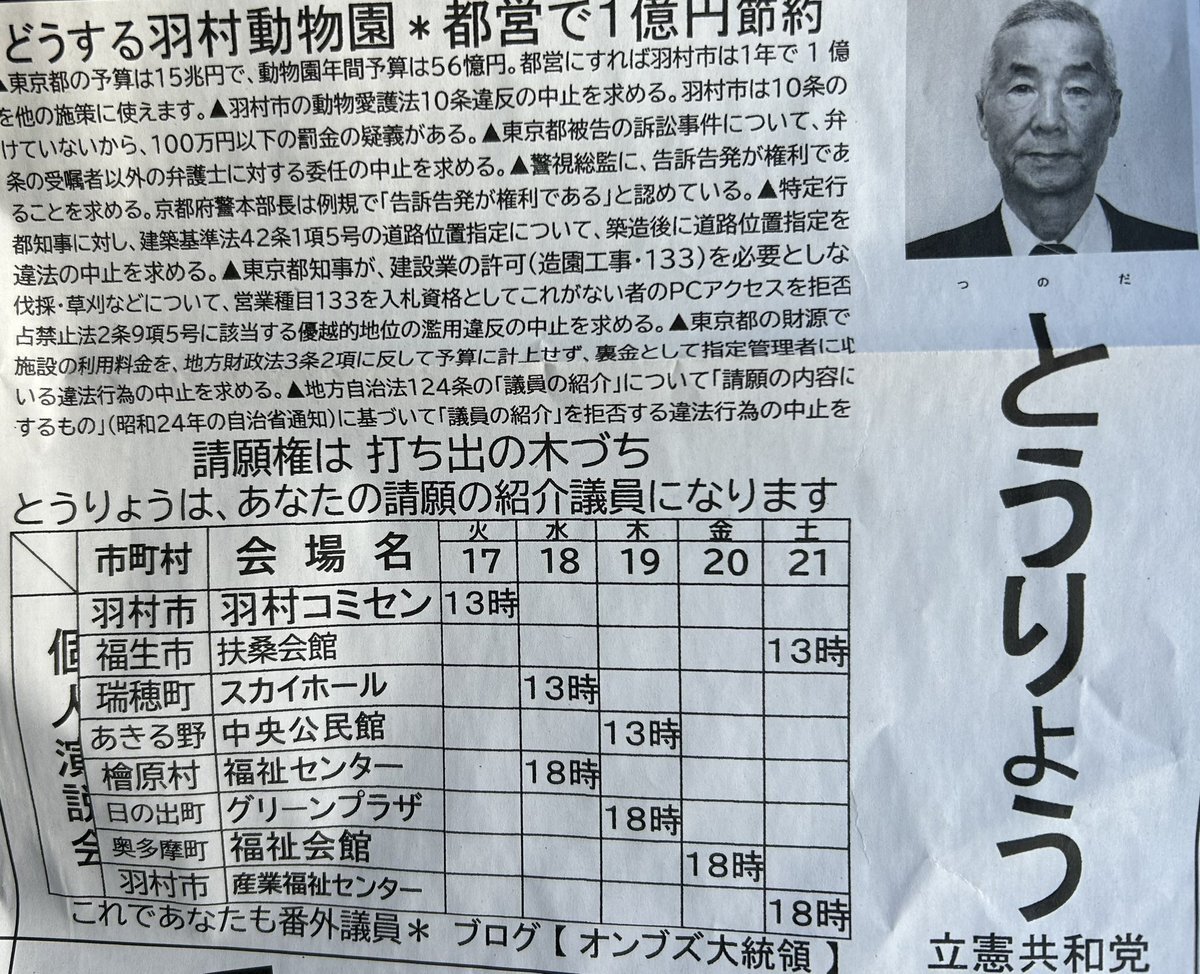 どうする羽村動物園＊都営で1億円節約
▲東京都の予算は15兆円で、動物園年間予算は56億円。都営にすれば羽村市は1年で1億
を他の施策に使えます。▲羽村市の動物愛護法10条違反の中止を求める。羽村市は10条の
けていないから、100万円以下の罰金の疑義がある。▲東京都被告の訴訟事件について、弁
条の受嘱者以外の弁護士に対する委任の中止を求める。▲警視総監に、告訴告発が権利であ
ることを求める。京都府警本部長は例規で「告訴告発が権利である」と認めている。▲特定行
都知事に対し、建築基準法42条1項5号の道路位置指定について、築造後に道路位置指定を
違法の中止を求める。▲東京都知事が、建設業の許可(造園工事・133)を必要としな
伐採・草刈などについて、営業種目133を入札資格としてこれがない者のPCアクセスを拒否
占禁止法2条9項5号に該当する優越的地位の濫用違反の中止を求める。▲東京都の財源で
施設の利用料金を、地方財政法3条2項に反して予算に計上せず、裏金として指定管理者に収
いる違法行為の中止を求める。▲地方自治法124条の「議員の紹介」について「請願の内容に
するもの」(昭和24年の自治省通知)に基づいて「議員の紹介」を拒否する違法行為の中止を
請願権は 打ち出の木づち
とうりょうは、あなたの請願の紹介議員になります
市町村 会場名 火17 水18 木19 金20 土21
個人演説会
羽村市 羽村コミセン 13時
福生市 扶桑会館 13時
瑞穂町 スカイホール 13時
あきる野 中央公民館 13時
檜原村 福祉センター 18時
日の出町 グリーンプラザ 18時
奥多摩町 福祉会館 18時
羽村市 産業福祉センター 18時
これであなたも番外議員＊ ブログ【オンブズ大統領】
つのだ
とうりょう
立憲共和党